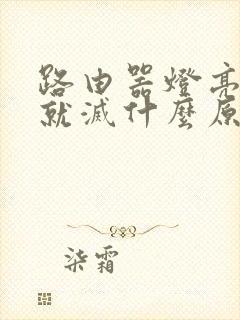 路由器燈亮
就滅什麼原
柒霜